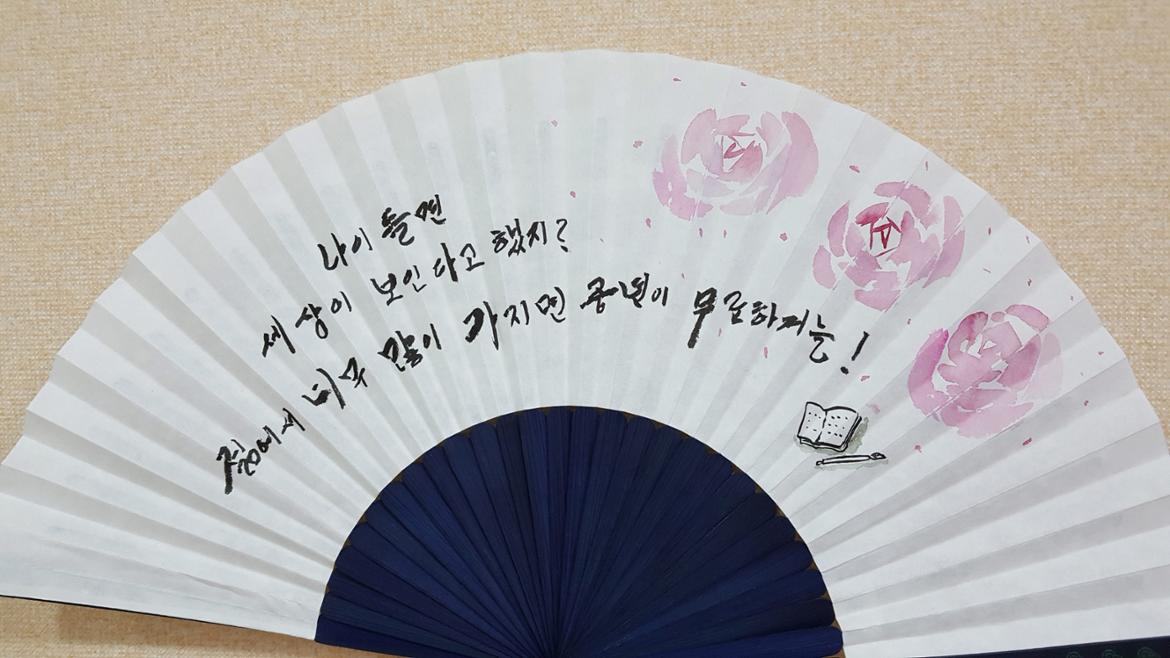 나이 들면
세상이 보인다고 했지?
너무 많이 가지면 중년이 무료하거늘!